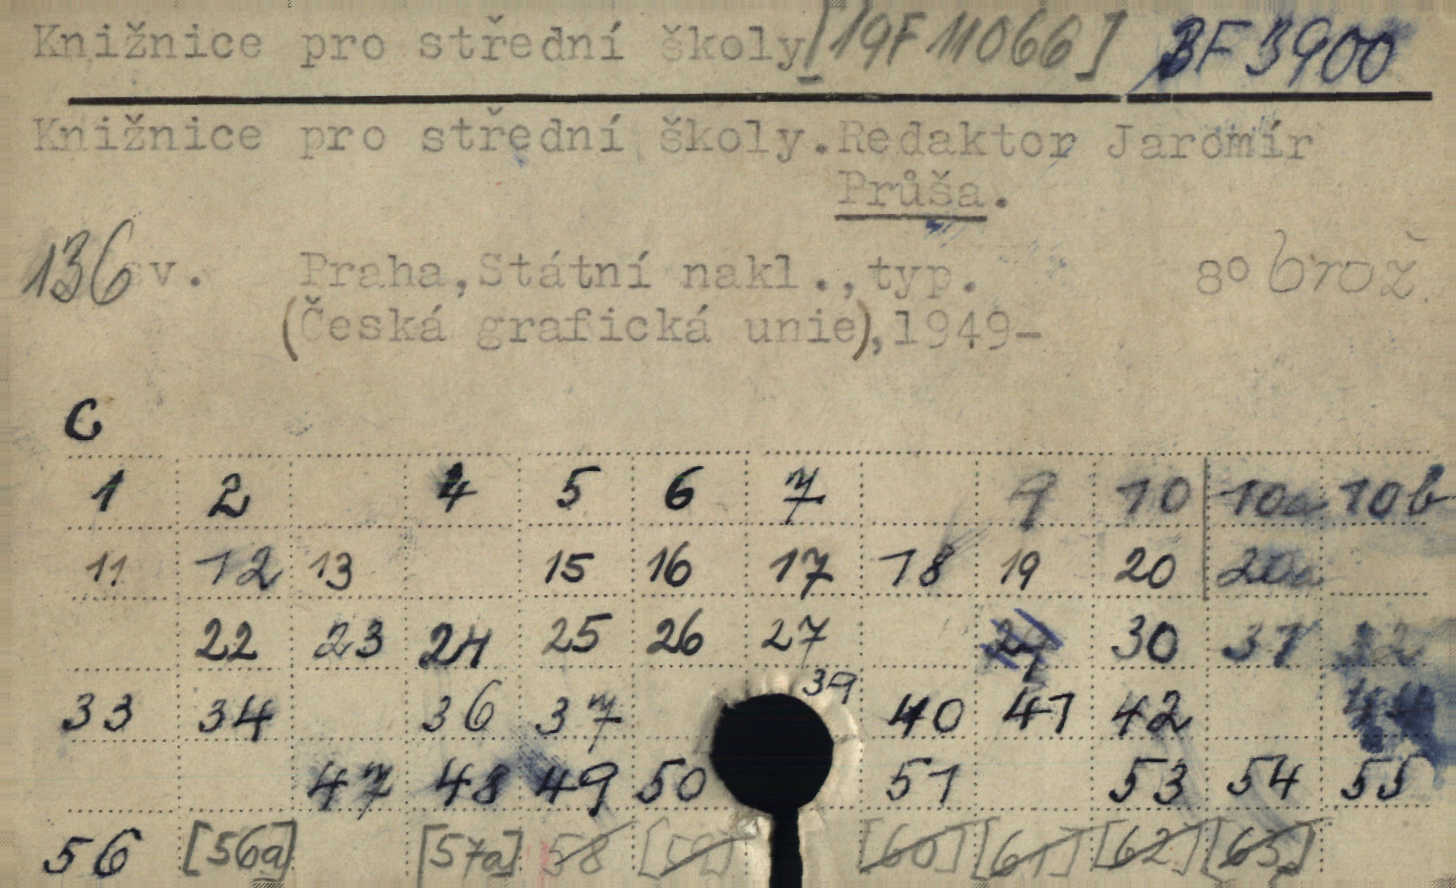 Knižnice pro střední školy [19F 11066] 3F 3900
Knižnice pro střední školy. Redaktor Jaromír
Průša.
136 sv. Praha, Státní nakl., typ. 8° brož.
(Česká grafická unie), 1949-
C
1 2 4 5 6 7 9 10 10a 10b
11 12 13 15 16 17 18 19 20 20a
22 23 24 25 26 27 29 30 31 32
33 34 36 37 39 40 41 42 44
47 48 49 50 51 53 54 55
56 [56a] [57a] 58 [59] [60] [61] [62] [63]